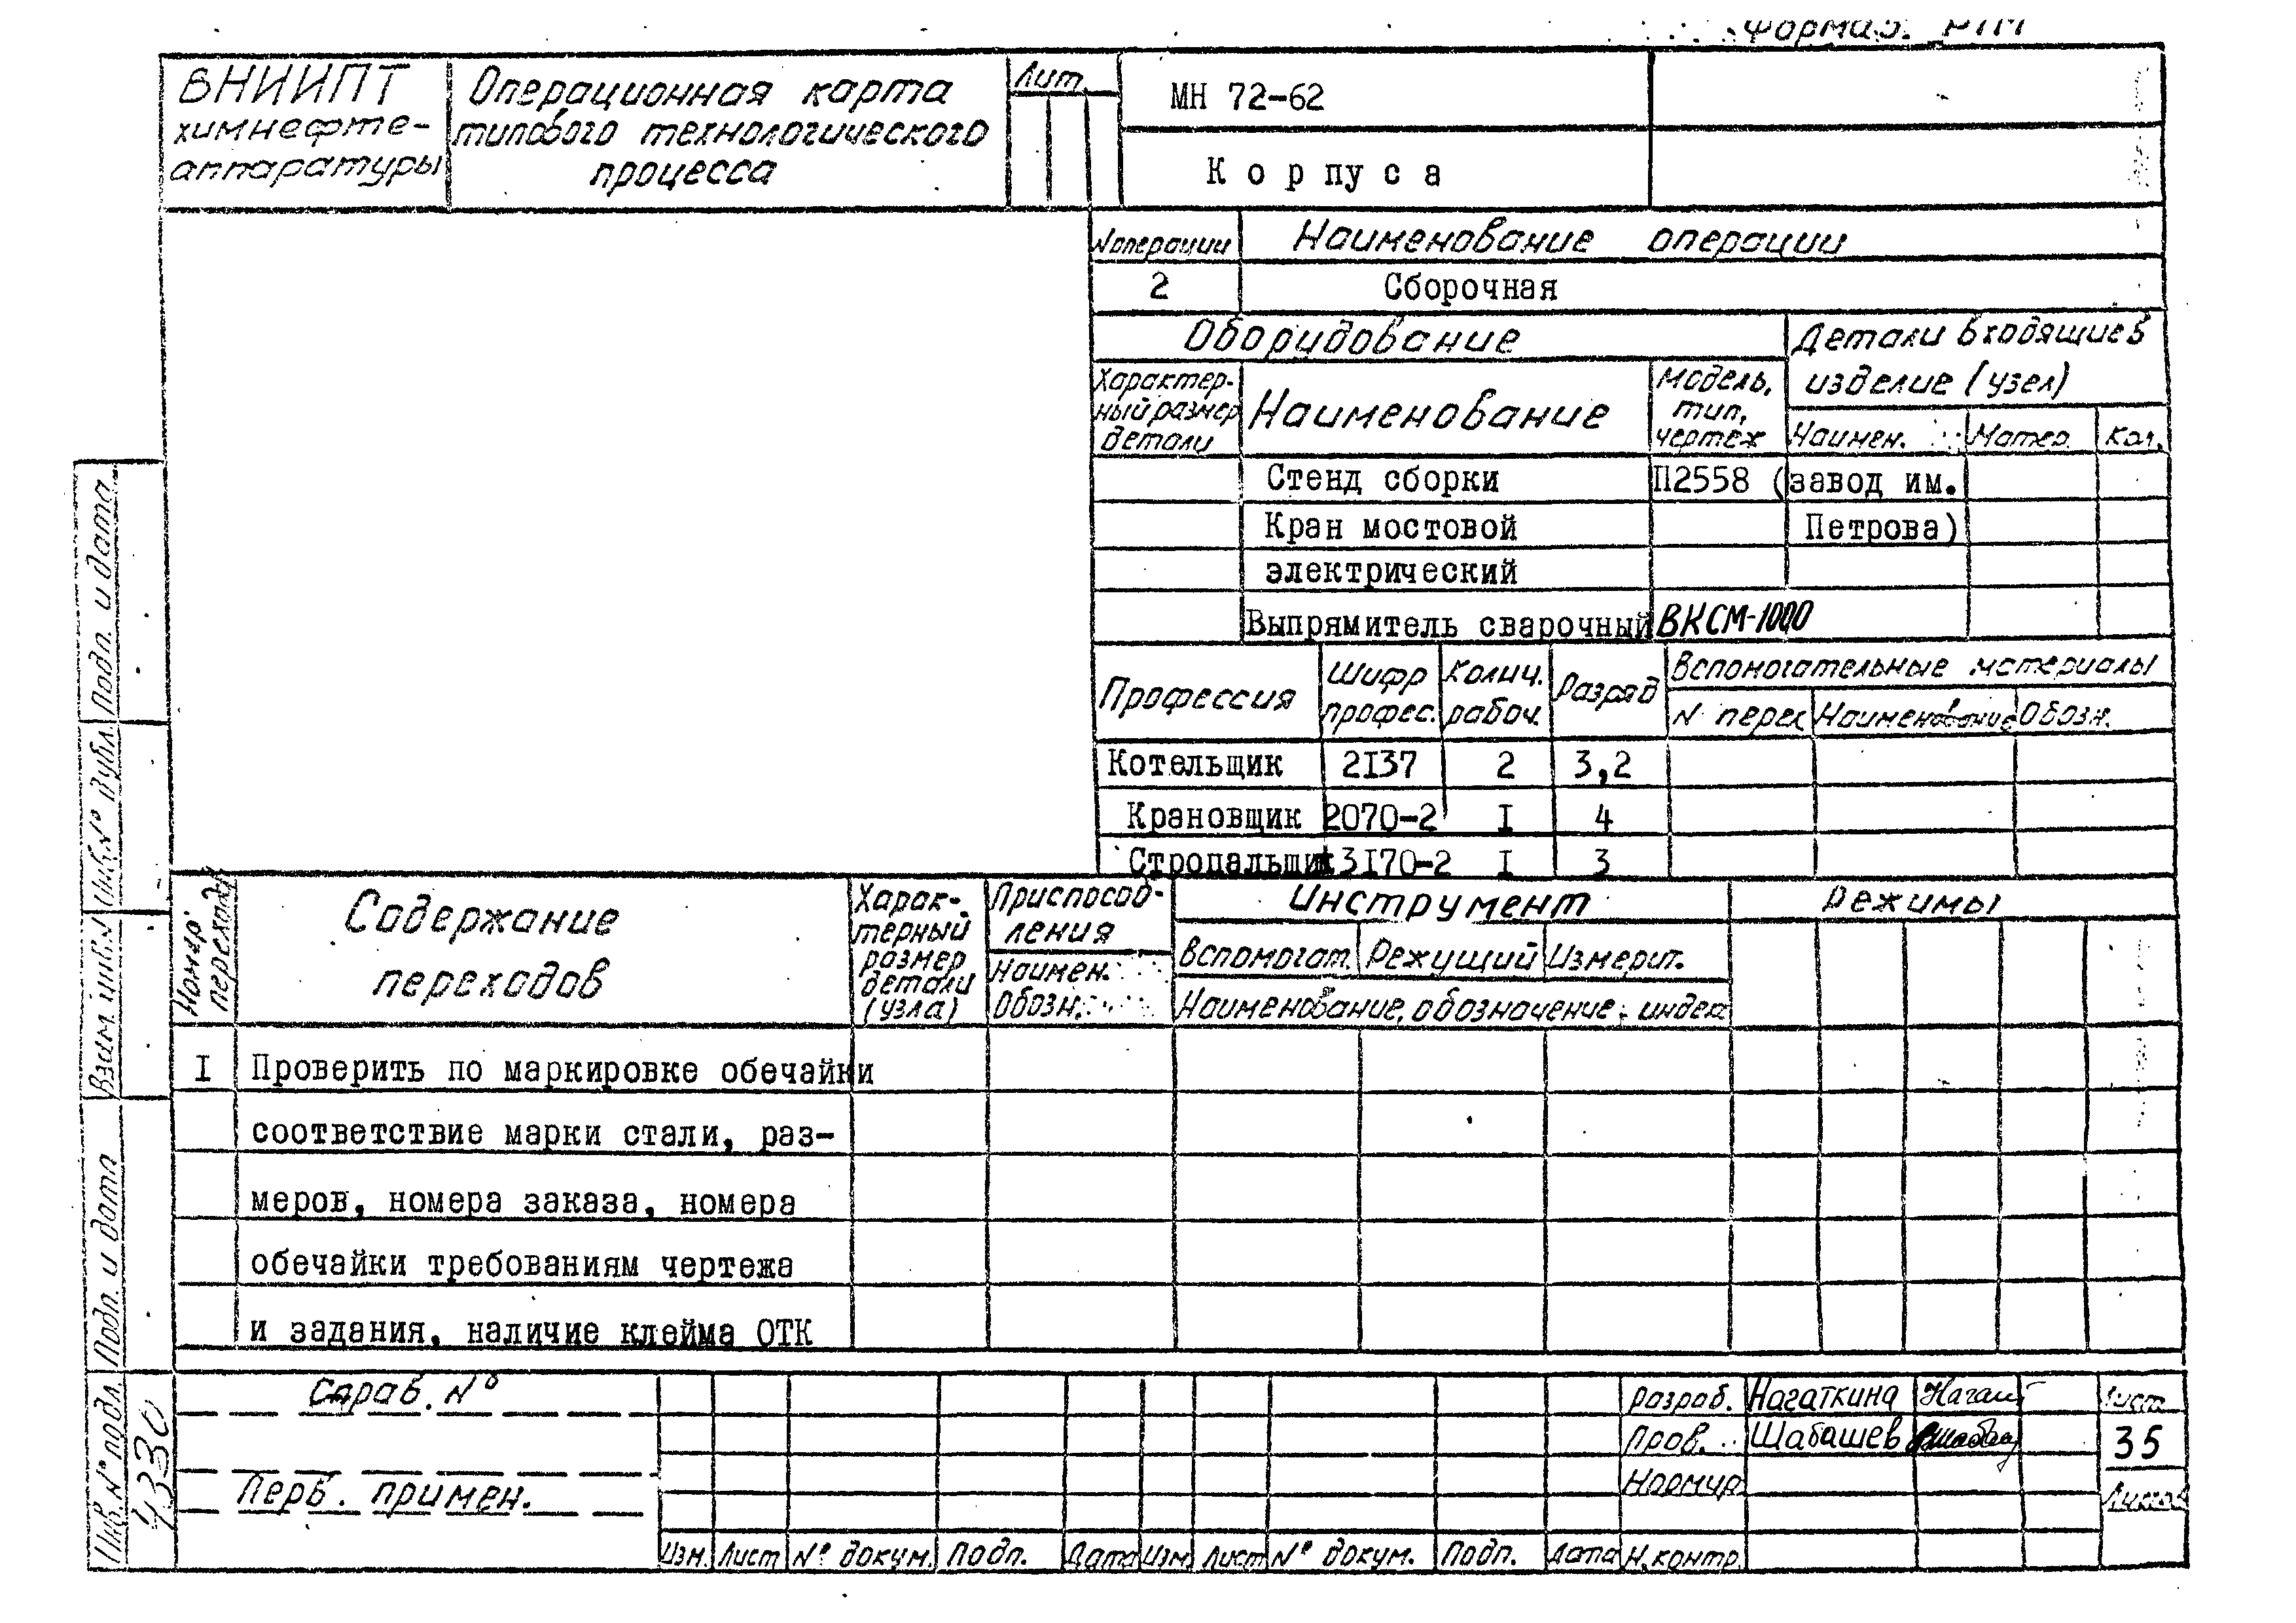 Форма 3. РТМ
ВНИИПТ
химнефте-
аппаратуры
Операционная карта
типового технологического
процесса
Лит.
МН 72-62
Корпуса
№ операции
Наименование операции
2
Сборочная
Оборудование
Детали входящие в
изделие (узел)
Характер-
ный размер
детали
Наименование
Модель,
тип,
чертеж
Наимен.
Матер.
Кол.
Стенд сборки
П2558 (завод им.
Кран мостовой
Петрова)
электрический
Выпрямитель сварочный
ВКСМ-1000
Профессия
Шифр
профес.
Колич.
рабоч.
Разряд
Вспомогательные материалы
N перех
Наименование
Обозн.
Котельщик 2I37 2 3,2
Крановщик 2070-2 I 4
Стропальщик 3I70-2 I 3
Номер
перехода
Содержание
переходов
Харак-
терный
размер
детали
(узла)
Приспособ-
ления
Наимен.
Обозн.
Инструмент
Вспомогат.
Режущий
Измерит.
Наименование, обозначение, индекс
Режимы
I Проверить по маркировке обечайки
соответствие марки стали, раз-
меров, номера заказа, номера
обечайки требованиям чертежа
и задания, наличие клейма ОТК
Справ. №
Перв. примен.
Изм. Лист № докум. Подп. Дата Изм. Лист № докум. Подп. Дата
Разраб. Нагаткина
Пров. Шабашев
Нормир.
Н.контр.
Лист
35
Листов
Подп. и дата
Инв. № дубл.
Взам. инв. №
Подп. и дата
Инв. № подл.
4330